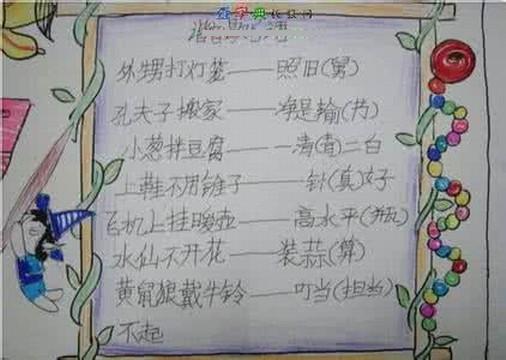 查字典
外甥打灯笼——照旧(舅)
孔夫子搬家——净是输(书)
小葱拌豆腐——清(青)二白
上鞋不用锥子——针(真)好
飞机上挂暖壶——高水平(瓶)
水仙不开花——装蒜(算)
黄鼠狼戴牛铃——叮当(担当)
不起